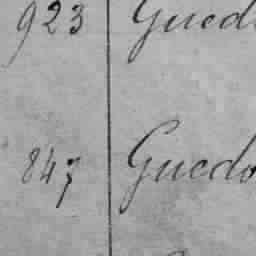 923 Guedo
847 Guedo